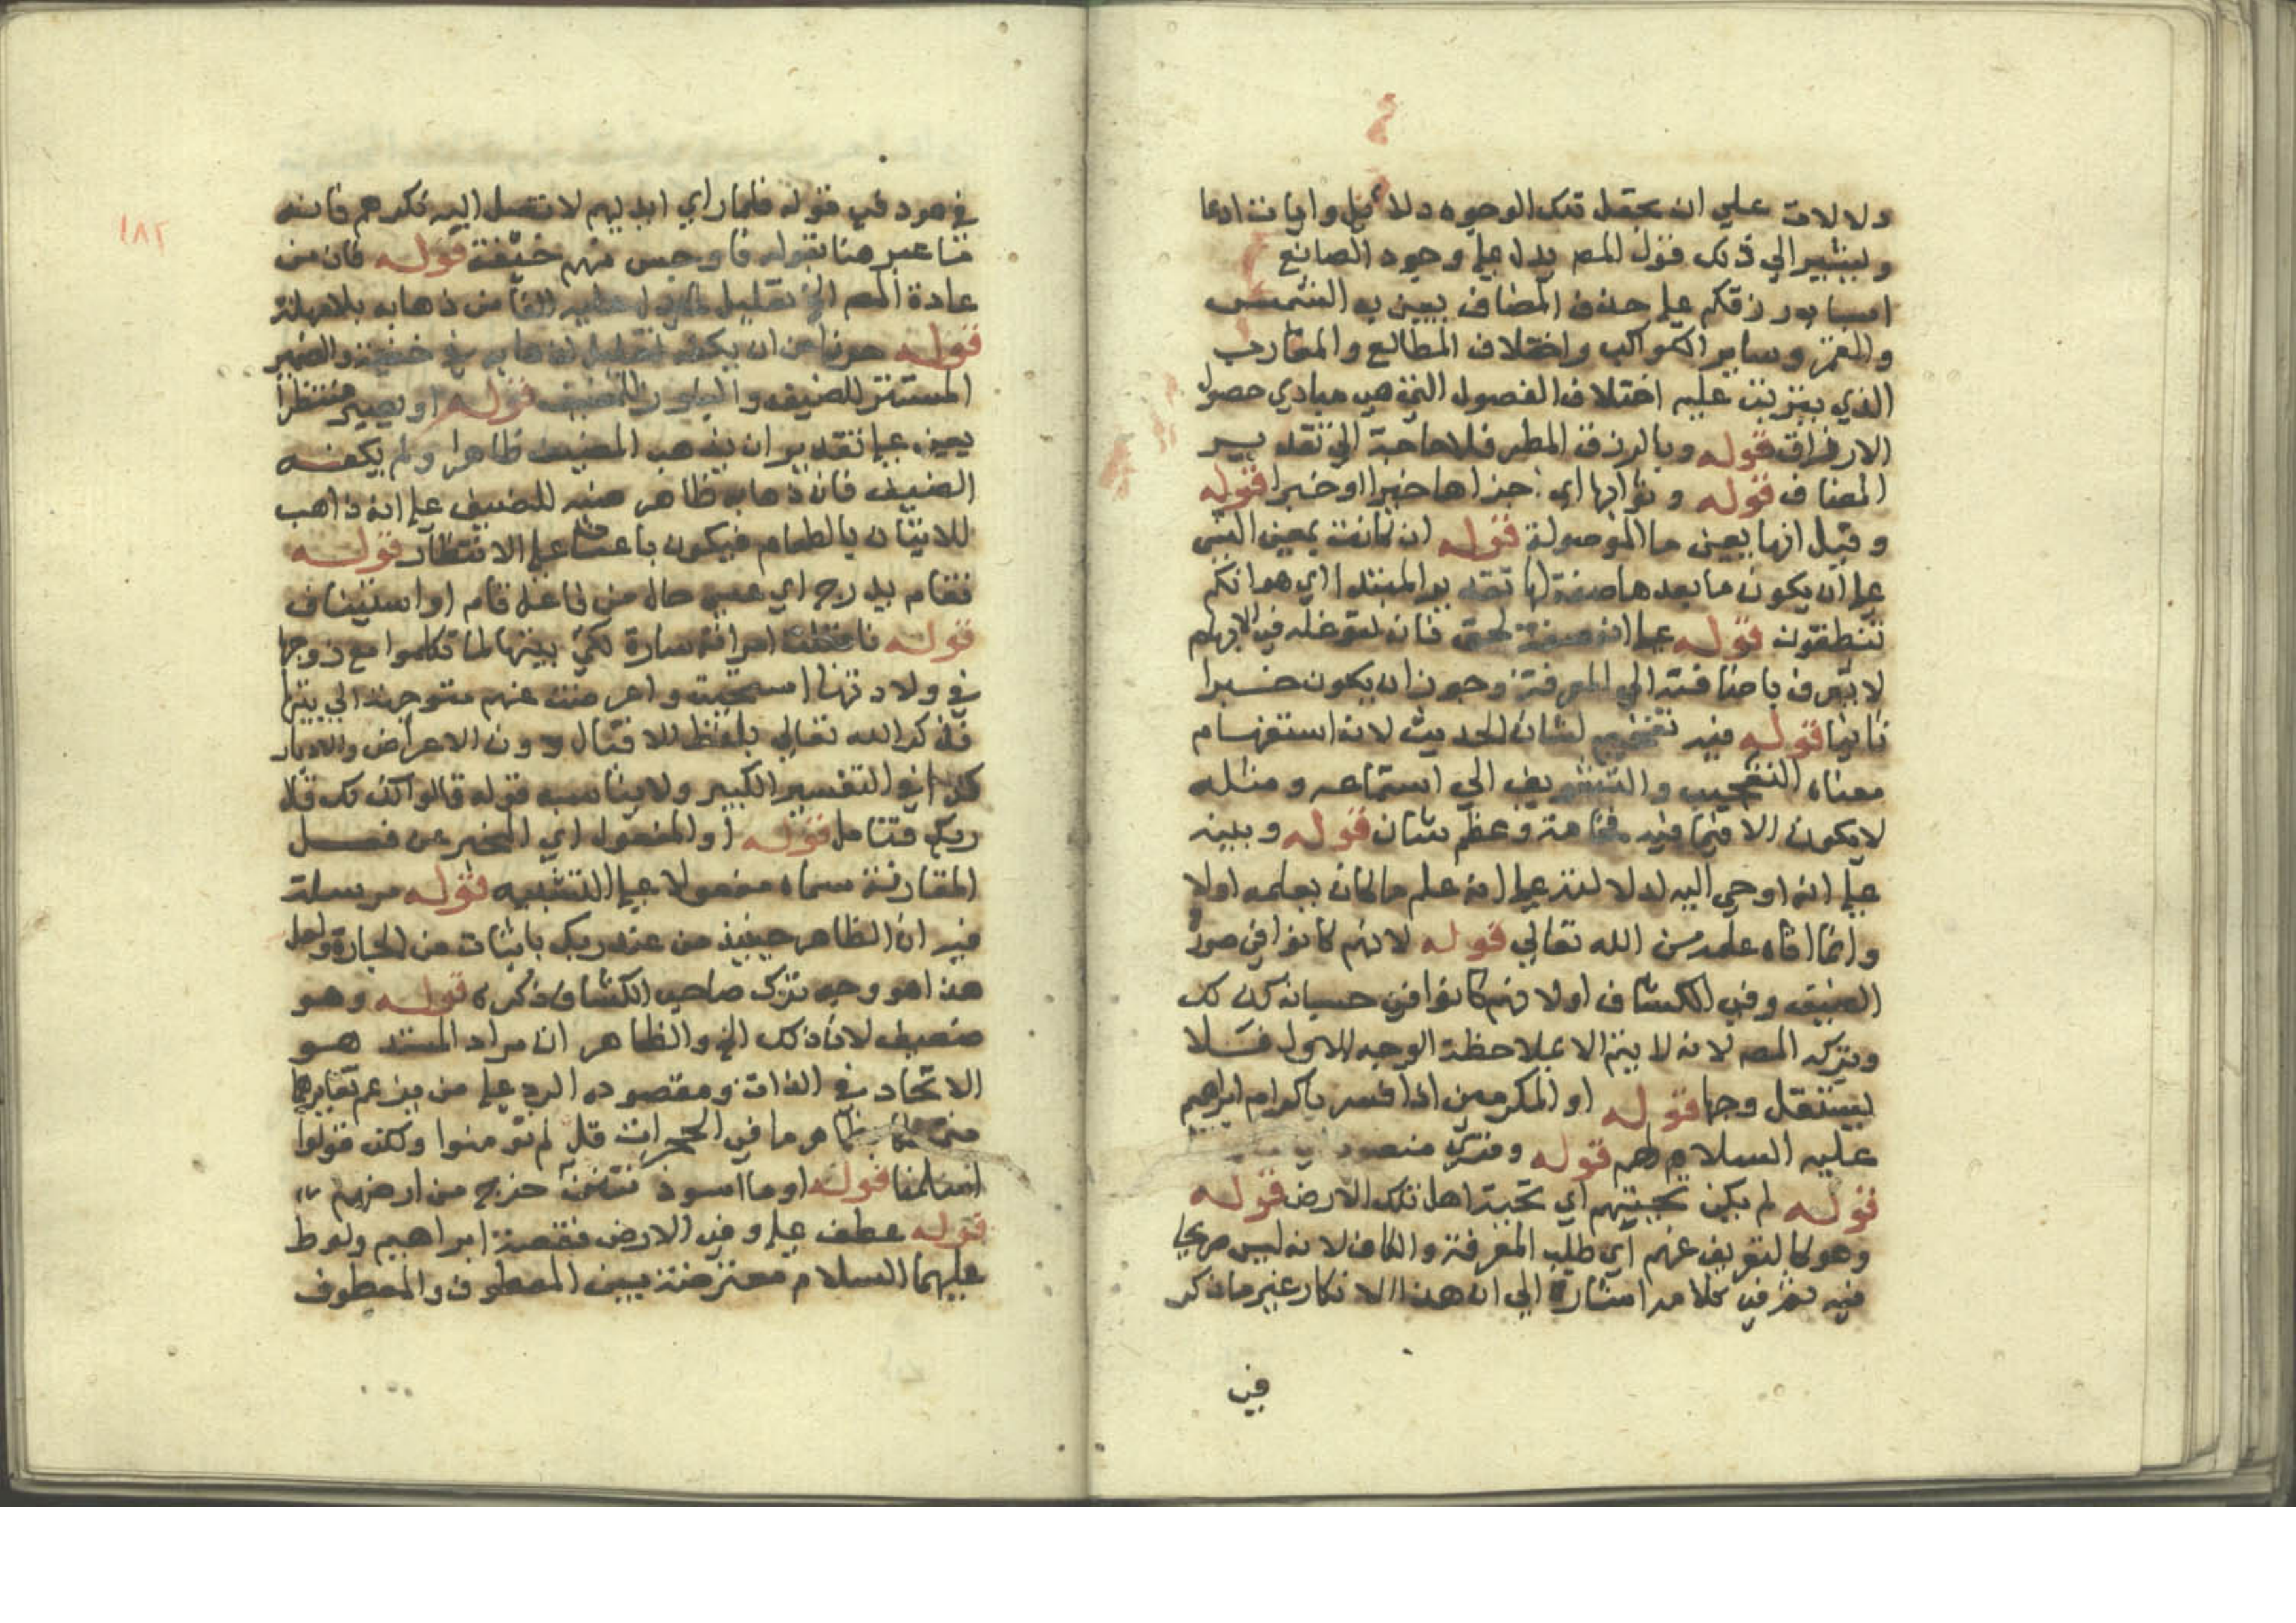 دلالات علي ان بجعل تلك الوجوه دلائل وايات ادعا
ويشير الي ذلك قول المص يدل علي وجود الصانع
اسباب رزقكم علي حذف المضاف يعني به الشمس
والقمر وساير الكواكب واختلاف المطالع والمغارب
الذي يترتب عليه اختلاف الفصول التي هي مبادي حصول
الارزاق قوله وبالرزق المطر فلا حاجة الي تقدير
المضاف قوله وثوابها اي جزاها خيرا او خيرا قوله
وقيل انها بمعني ما الموصولة قوله ان كانت بمعني الشي
علي ان يكون ما بعدها صفة لها تقدير المبتدا اي هو انكم
تنطقون قوله علي انه صفة لحق فان لتوغله في الابهام
لا يتعرف باضافته الي المعرفة وجوز ان يكون خبرا
ثانيا قوله فيه تفخيم لشان الحديث لانه استفهام
معناه التعجيب والتشويق الي استماعه ومثله
لا يكون الا فيما فيه فخامة وعظم شان قوله وبينه
علي انه اوحي اليه لدلالته علي انه علم ما كان يعلمه اولا
وانما اتاه علمه من الله تعالي قوله لانهم كانوا في صورة
الضيف وفي الكشاف اولا فهم كانوا في حسبانه كذلك
وتركه المص لانه لا يتم الا بملاحظة الوجه الاول فلا
يستقل وجها قوله او المكرمين اذا فسر باكرام ابراهيم
عليه السلام لهم قوله وقري منصو
قوله لم يكن تحيتهم اي تحية اهل تلك الارض قوله
وهو كالتعريف عنهم اي طلب المعرفة والكاف لانه ليس صريحا
فيه ثم في كلامه اشارة الي ان هذا الانكار غير ما ذكر
في
١٨٢
في هود في قوله فلما راي ايديهم لا تصل اليه نكرهم فانه
ما عبر هنا بقوله فاوجس منهم خيفة قوله فان من
عادة المص الخ تعليل لما يدل عليه الفا من ذهابه بلا مهلة
قوله حذرا من ان يكفه تعليل لذهابه في خفية والضمير
المستتر للضيف والبارز للمضيف قوله او يصير منتظرا
يعني علي تقدير ان يذهب المضيف ظاهرا ولم يكفه
الضيف فان ذهابه ظاهر منبه للضيف علي انه ذاهب
للاتيان بالطعام فيكون باعثا علي الانتظار قوله
فقام يدرج اي عسي حال من فاعل قام او استيناف
قوله فاقبلت امراته سارة لكي بيتها لما تكلموا مع زوجها
في ولادتها استحيت واعرضت عنهم متوجهة الي بيتها
فذكر الله تعالي بلفظ الاقبال دون الاعراض والادبار
كذا في التفسير الكبير ولا يناسبه قوله قالوا كذلك قال
ربك فتامل قوله او المفعول اي المخبر عن فعل
المقارنة سماه مفعولا علي التشبيه قوله مرسلة
فيه ان الظاهر حينيذ من عند ربك باثبات من الجارة ولعل
هذا هو وجه ترك صاحب الكشاف ذكره قوله وهو
ضعيف لان ذلك الخ والظاهر ان مراد المستد هو
الاتحاد في الذات ومقصوده الرد علي من يزعم تغايرهما
ظاهر ما في الحجرات قل لم تومنوا ولكن قولوا
اسلمنا قوله او ما اسود نتن حزج من ارضهم
قوله عطف علي وفي الارض فقصة ابراهيم ولوط
عليهما السلام معترضة بين المعطوف والمعطوف